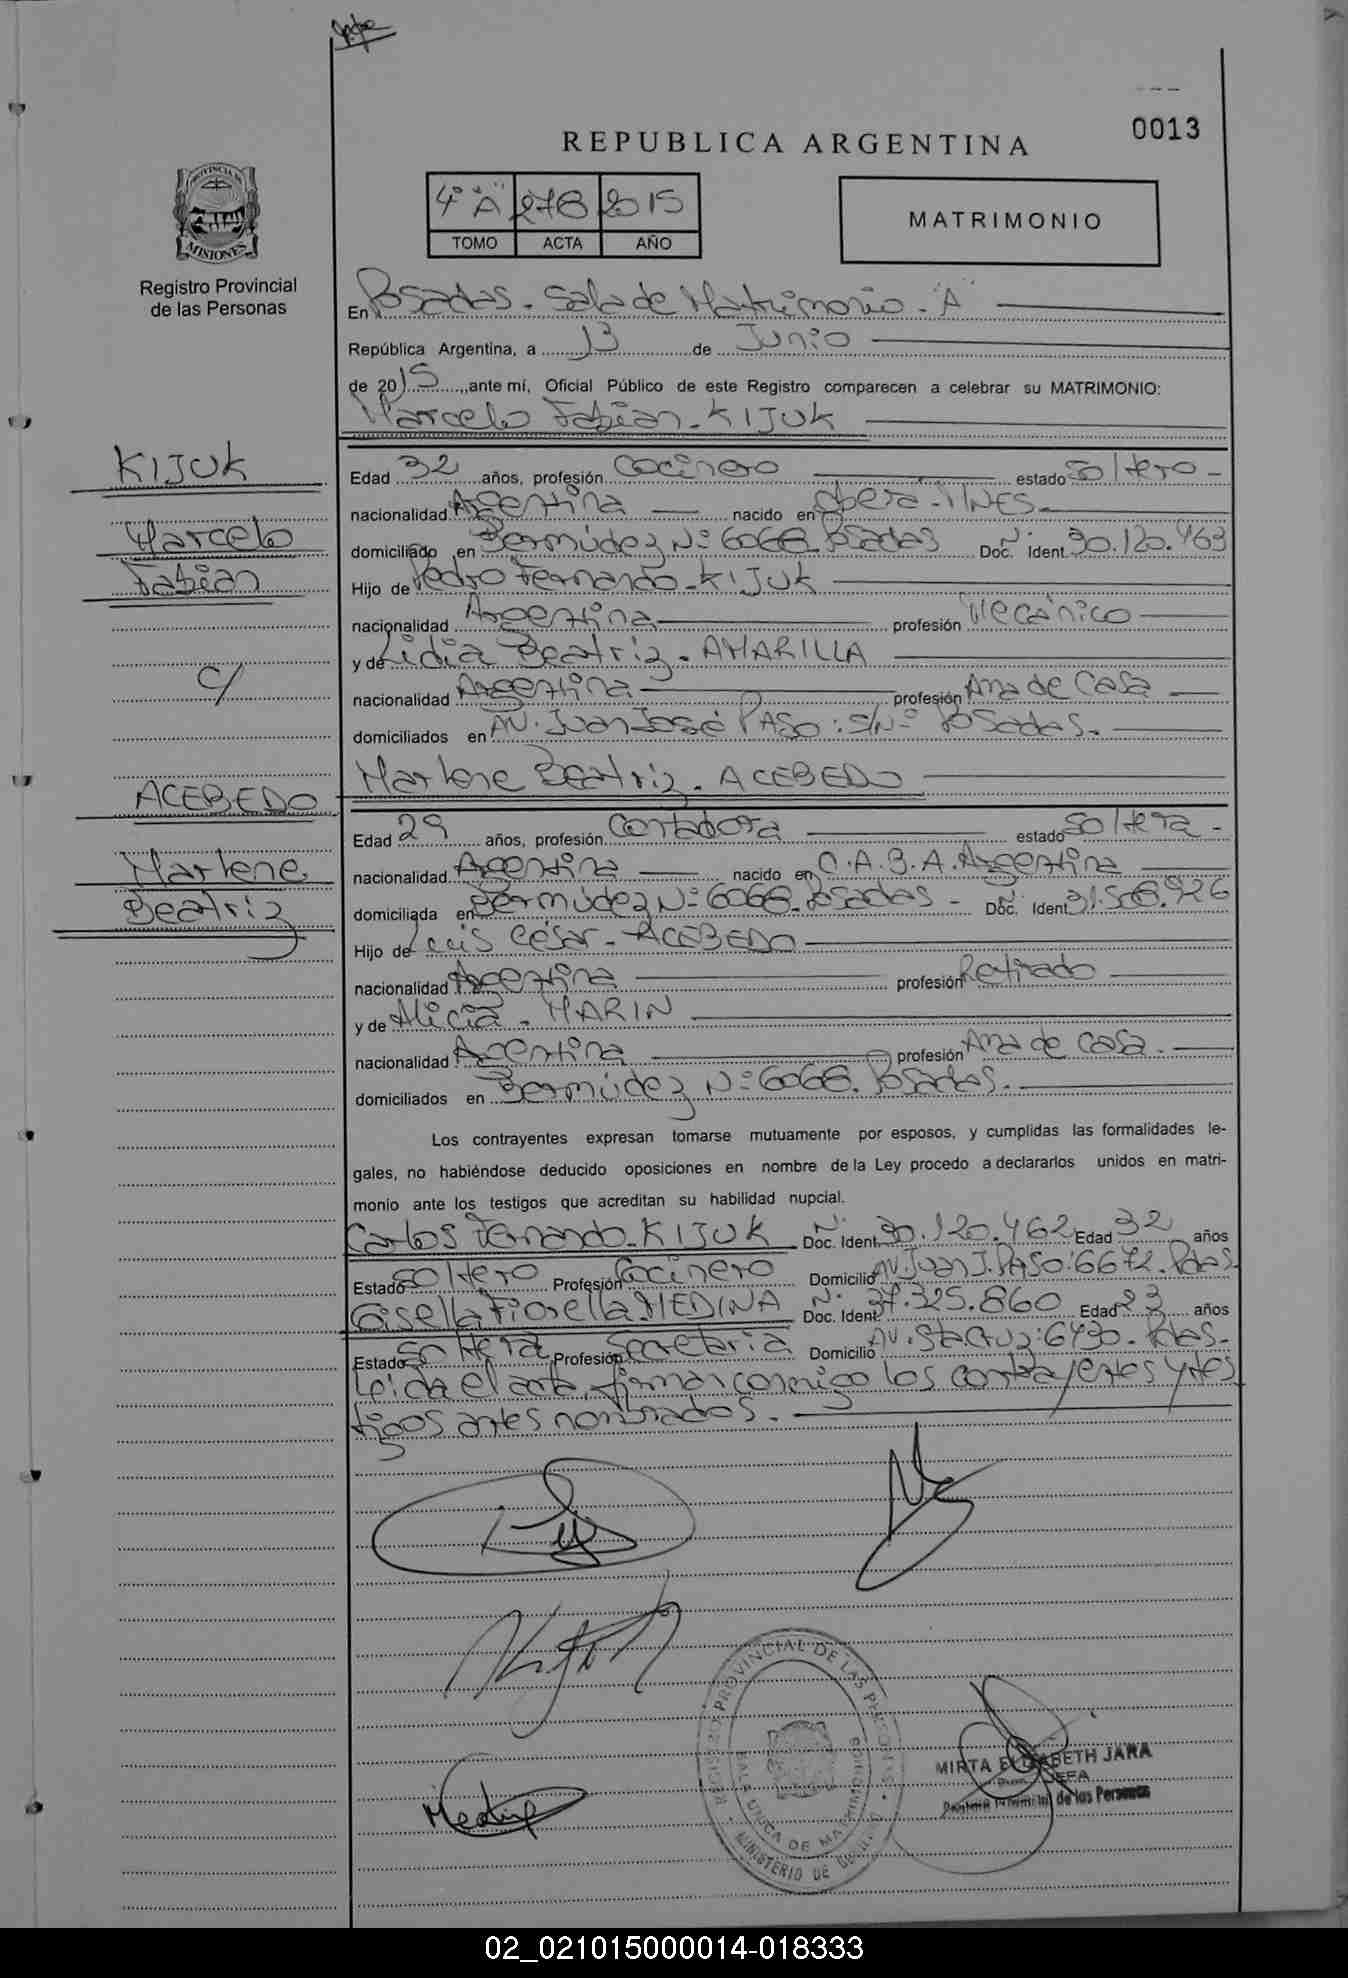 0013
REPUBLICA ARGENTINA
4º "A" 276 2015
TOMO ACTA AÑO
MATRIMONIO
PROVINCIA DE
MISIONES
Registro Provincial
de las Personas
En Posadas. Sala de Matrimonio. "A"
República Argentina, a 13 de Junio
de 2015, ante mí, Oficial Público de este Registro comparecen a celebrar su MATRIMONIO:
Marcelo Fabian. KIJUK
KIJUK
Marcelo
Fabian
C/
ACEBEDO
Marlene
Beatriz
Edad 32 años, profesión Cocinero estado Soltero -
nacionalidad Argentina nacido en Oberá. MNES.
domiciliado en Bermúdez Nº 6068. Posadas Doc. Ident. Nº 30.120.463
Hijo de Pedro Fernando. KIJUK
nacionalidad Argentina profesión Mecánico
y de Lidia Beatriz. AMARILLA
nacionalidad Argentina profesión Ama de Casa
domiciliados en AV. Juan José PASO: S/Nº Posadas.
Marlene Beatriz. ACEBEDO
Edad 29 años, profesión Contadora estado Soltera -
nacionalidad Argentina nacido en C.A.B.A. Argentina
domiciliada en Bermúdez Nº 6068. Posadas - Doc. Ident. Nº 31.508.926
Hijo de Luis César. ACEBEDO
nacionalidad Argentina profesión Retirado
y de Alicia. MARIN
nacionalidad Argentina profesión Ama de Casa.
domiciliados en Bermúdez Nº 6068. Posadas.
Los contrayentes expresan tomarse mutuamente por esposos, y cumplidas las formalidades le-
gales, no habiéndose deducido oposiciones en nombre de la Ley procedo a declararlos unidos en matri-
monio ante los testigos que acreditan su habilidad nupcial.
Carlos Fernando. KIJUK Doc. Ident. Nº 30.120.462 Edad 32 años
Estado Soltero Profesión Cocinero Domicilio AV. Juan J. PASO: 6672. Pdas.
Gisella Fiorella. MEDINA Doc. Ident. Nº 37.325.860 Edad 23 años
Estado Soltera Profesión Secretaria Domicilio AV. Sta. Cruz: 6430. Pdas.
Leída el acta, firman conmigo los contrayentes y tes
tigos antes nombrados.
REGISTRO PROVINCIAL DE LAS PERSONAS
SALA UNICA DE MATRIMONIOS
MINISTERIO DE
Medina
MIRTA ELIZABETH JARA
JEFA
de las Personas
02_021015000014-018333